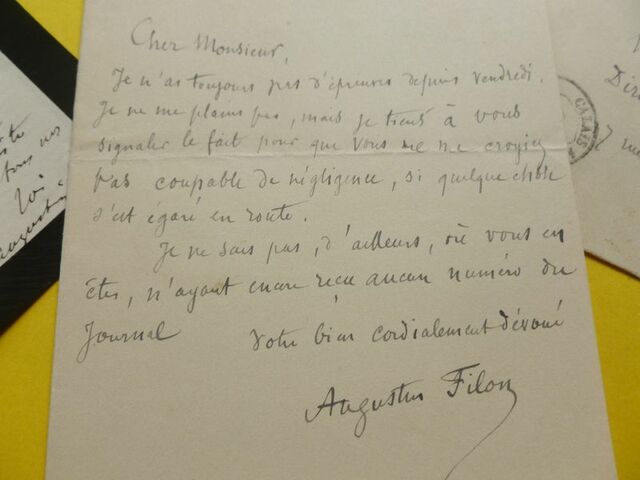 Cher Monsieur,
Je n'ai toujours pas d'épreuves depuis vendredi.
Je ne me plains pas, mais je tiens à vous
signaler le fait pour que vous ne me croyiez
pas coupable de négligence, si quelque chose
s'est égaré en route.
Je ne sais pas, d'ailleurs, où vous en
êtes, n'ayant encore reçu aucun numéro du
Journal
Votre bien cordialement dévoué
Augustin Filon
CALAIS
Dir